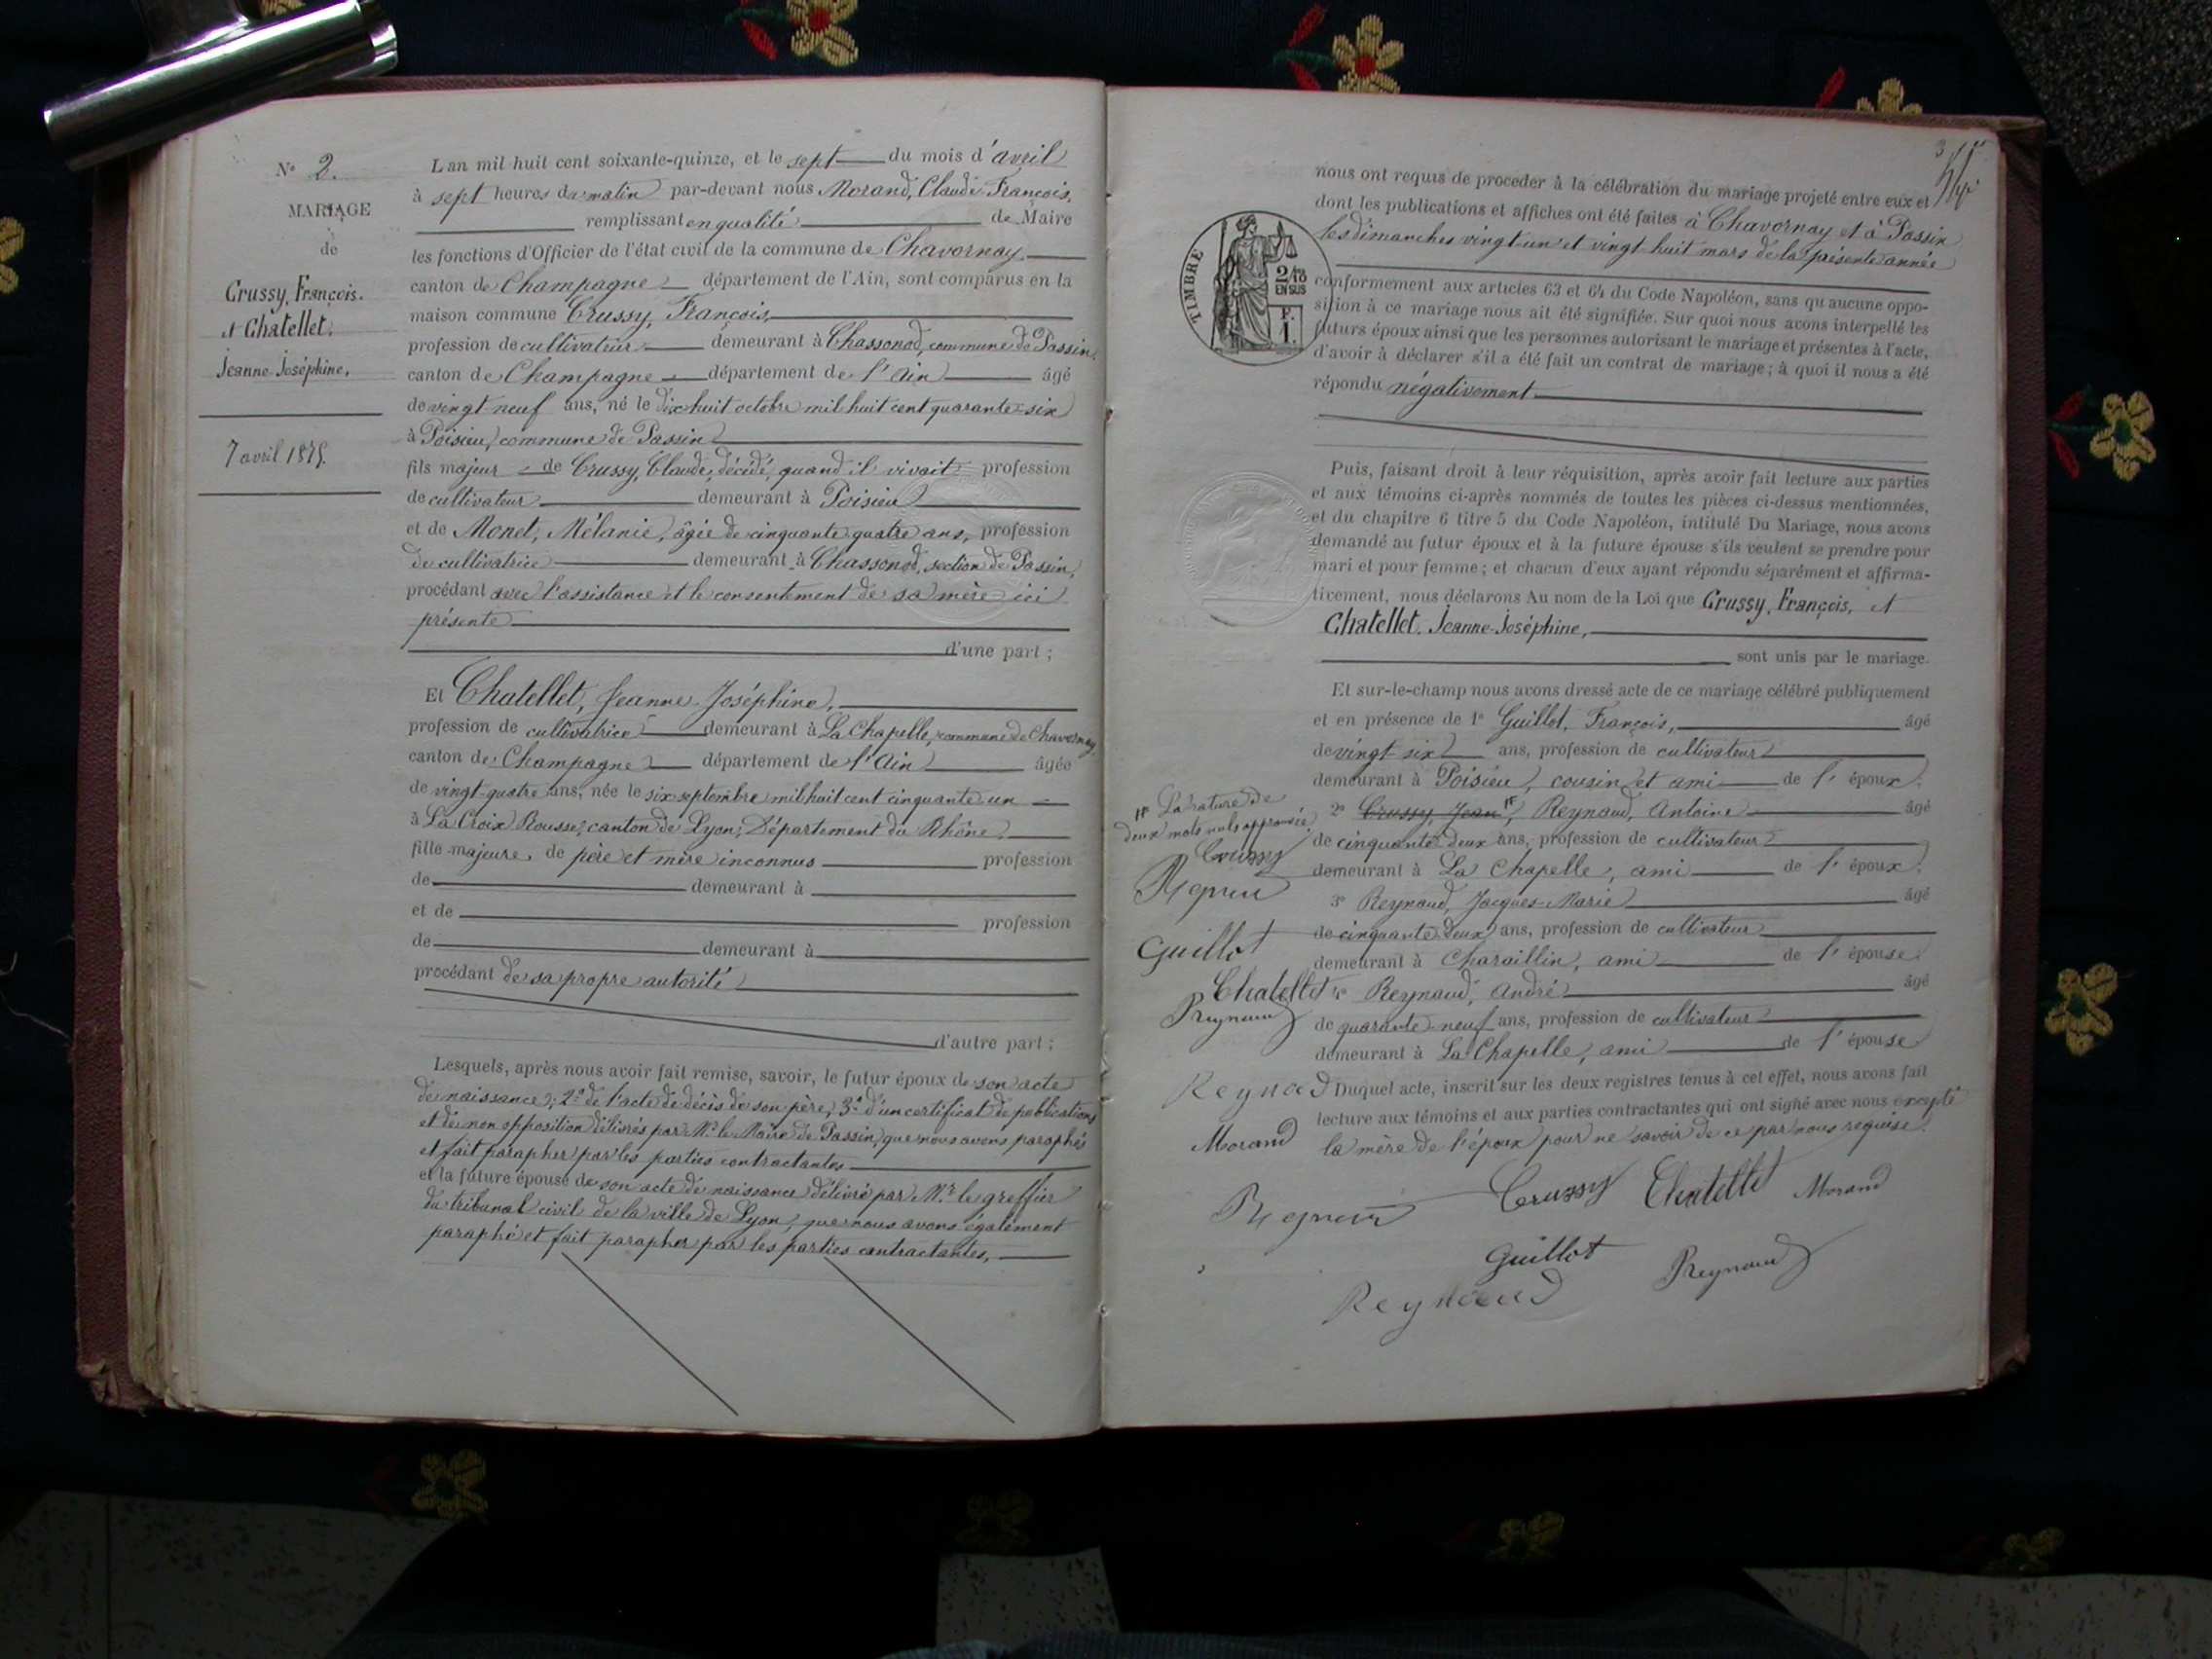 N° 2.
MARIAGE
de
Crussy, François.
et Chatellet,
Jeanne-Joséphine,
7 avril 1875.
L'an mil huit cent soixante-quinze, et le sept du mois d'avril
à sept heures du matin par-devant nous Morand, Claude-François,
remplissant en qualité de Maire
les fonctions d'Officier de l'état civil de la commune de Chavornay
canton de Champagne département de l'Ain, sont comparus en la
maison commune Crussy, François,
profession de cultivateur demeurant à Chassonod, commune de Passin,
canton de Champagne département de l'Ain âgé
de vingt neuf ans, né le dix huit octobre mil huit cent quarante-six
à Poisieu, commune de Passin
fils majeur de Crussy, Claude, décédé, quand il vivait profession
de cultivateur demeurant à Poisieu
et de Monet, Mélanie, âgée de cinquante quatre ans, profession
de cultivatrice demeurant à Chassonod, section de Passin,
procédant avec l'assistance et le consentement de sa mère ici
présente
d'une part ;
Et Chatellet, Jeanne-Joséphine,
profession de cultivatrice demeurant à La Chapelle, commune de Chavornay,
canton de Champagne département de l'Ain âgée
de vingt-quatre ans, née le six septembre mil huit cent cinquante un
à La Croix Rousse, canton de Lyon, Département du Rhône,
fille majeure, de père et mère inconnus profession
de demeurant à
et de profession
de demeurant à
procédant de sa propre autorité
d'autre part ;
Lesquels, après nous avoir fait remise, savoir, le futur époux de son acte
de naissance ; 2° de l'acte de décès de son père, 3° d'un certificat de publications
et de non opposition délivrés par Mr. le Maire de Passin, que nous avons paraphés
et fait parapher par les parties contractantes
et la future épouse de son acte de naissance délivré par Mr. le greffier
du tribunal civil de la ville de Lyon, que nous avons également
paraphé et fait parapher par les parties contractantes,
nous ont requis de procéder à la célébration du mariage projeté entre eux et
dont les publications et affiches ont été faites à Chavornay et à Passin
les dimanches vingt-un et vingt-huit mars de la présente année
TIMBRE
2/10
EN SUS
F.
1.
conformément aux articles 63 et 64 du Code Napoléon, sans qu'aucune oppo-
sition à ce mariage nous ait été signifiée. Sur quoi nous avons interpellé les
futurs époux ainsi que les personnes autorisant le mariage et présentes à l'acte,
d'avoir à déclarer s'il a été fait un contrat de mariage ; à quoi il nous a été
répondu négativement
Puis, faisant droit à leur réquisition, après avoir fait lecture aux parties
et aux témoins ci-après nommés de toutes les pièces ci-dessus mentionnées,
et du chapitre 6 titre 5 du Code Napoléon, intitulé Du Mariage, nous avons
demandé au futur époux et à la future épouse s'ils veulent se prendre pour
mari et pour femme ; et chacun d'eux ayant répondu séparément et affirma-
tivement, nous déclarons Au nom de la Loi que Crussy, François, et
Chatellet, Jeanne-Joséphine,
sont unis par le mariage.
Et sur-le-champ nous avons dressé acte de ce mariage célébré publiquement
et en présence de 1° Guillot, François, âgé
de vingt-six ans, profession de cultivateur
demeurant à Poisieu, cousin et ami de l'époux,
2° Crussy, Jean, Reynaud, Antoine âgé
de cinquante-deux ans, profession de cultivateur
demeurant à La Chapelle, ami de l'époux,
3° Reynaud, Jacques-Marie âgé
de cinquante deux ans, profession de cultivateur
demeurant à Charaillin, ami de l'épouse
4° Reynaud, André âgé
de quarante-neuf ans, profession de cultivateur
demeurant à La Chapelle, ami de l'épouse
Duquel acte, inscrit sur les deux registres tenus à cet effet, nous avons fait
lecture aux témoins et aux parties contractantes qui ont signé avec nous excepté
la mère de l'époux pour ne savoir de ce par nous requise.
La rature de
deux mots nuls approuvée
Crussy
Guillot
Chatellet
Reynaud
Reynad
Morand
Crussy Chatellet Morand
Guillot
Reynaud
Reynaud